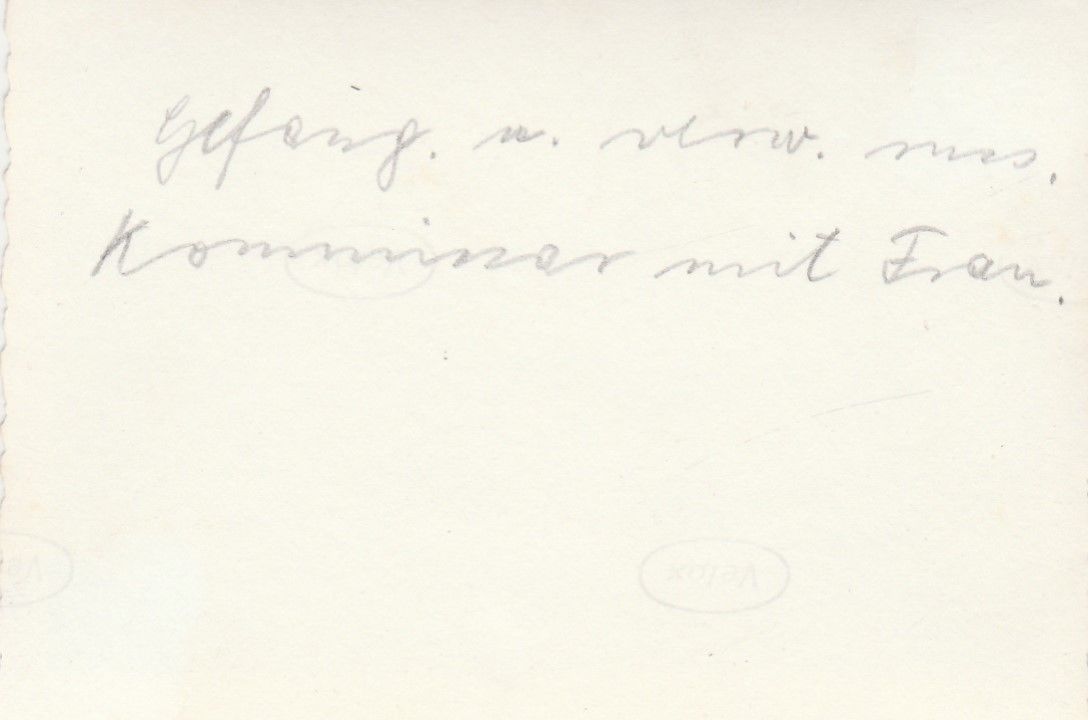 Gefang. u. verw. russ.
Kommissar mit Frau.
Velox